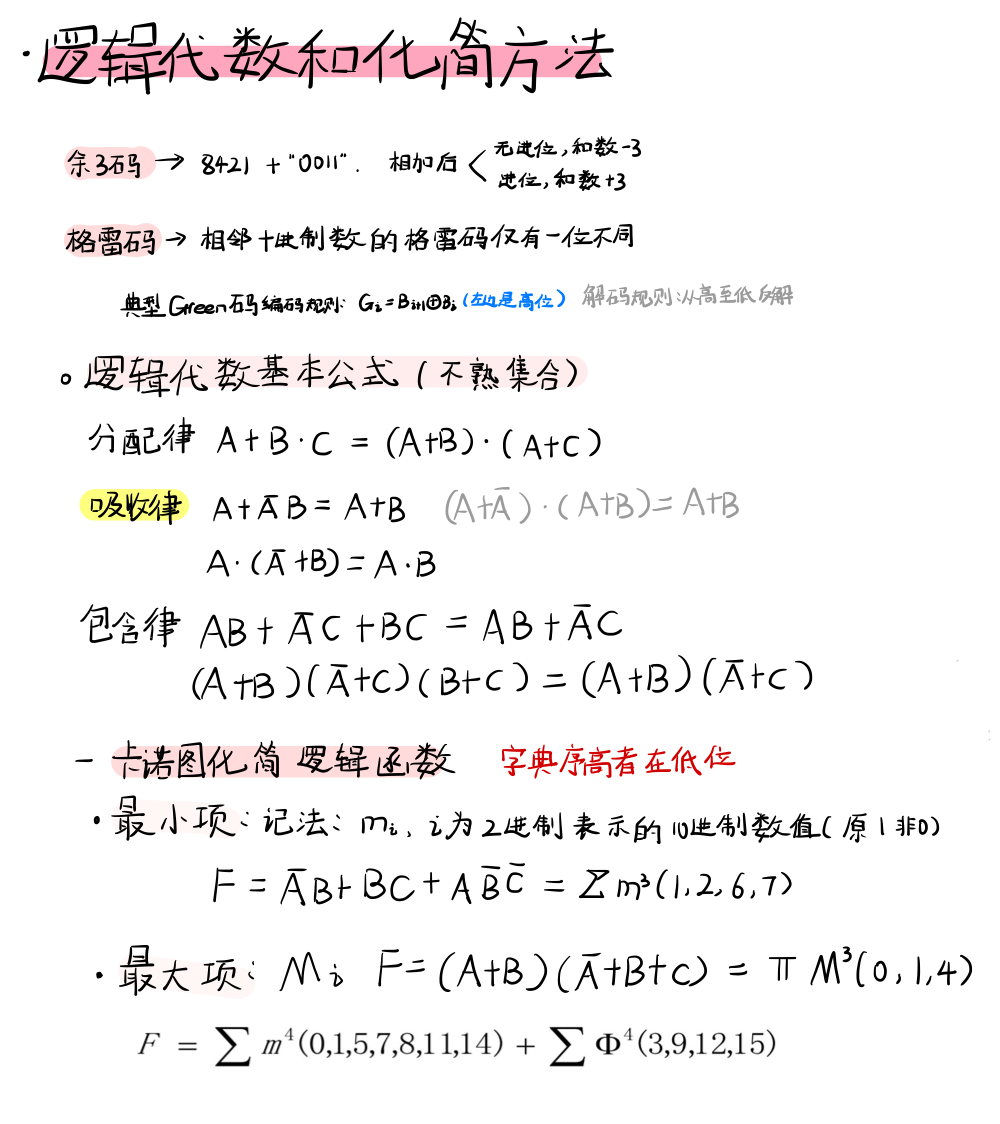 ·逻辑代数和化简方法
余3码 → 8421 + "0011". 相加后 < 无进位,和数-3
进位,和数+3
格雷码 → 相邻十进制数的格雷码仅有一位不同
典型Green码编码规则: Gᵢ=Bᵢ₊₁⊕Bᵢ (左边是高位) 解码规则:从高至低反解
。逻辑代数基本公式(不熟集合)
分配律 A+B·C = (A+B)·(A+C)
吸收律 A+A̅B=A+B (A+A̅)·(A+B)=A+B
A·(A̅+B)=A·B
包含律 AB+A̅C+BC=AB+A̅C
(A+B)(A̅+C)(B+C)=(A+B)(A̅+C)
- 卡诺图化简逻辑函数 字典序高者在低位
·最小项:记法: mᵢ, i为2进制表示的10进制数值(原1非0)
F=A̅B+BC+AB̅C̅=Σm³(1,2,6,7)
·最大项: Mᵢ F=(A+B)(A̅+B+C)=πM³(0,1,4)
F = ∑ m⁴(0,1,5,7,8,11,14) + ∑ Φ⁴(3,9,12,15)